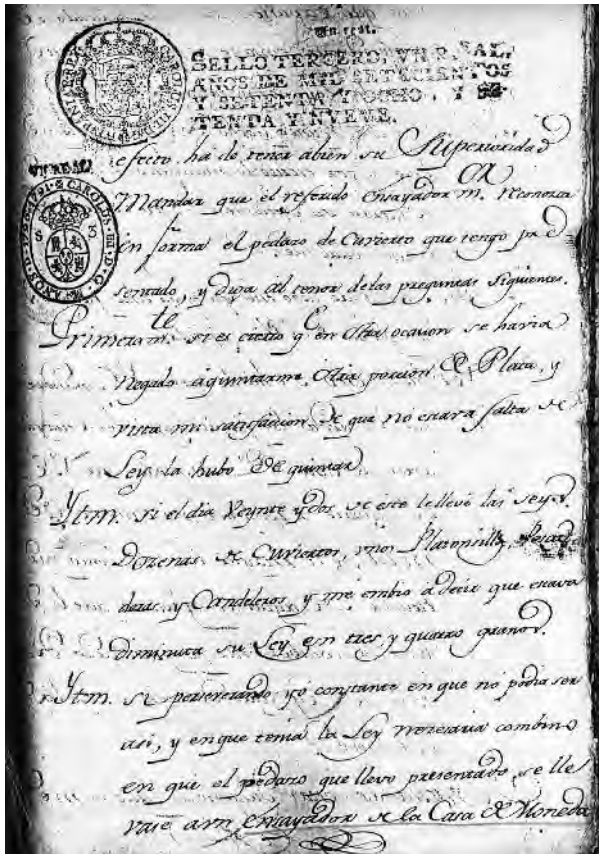 Un real.
SELLO TERCERO, VN REAL,
AÑOS DE MIL SETECIENTOS
Y SETENTA Y OCHO, Y SE-
TENTA Y NUEVE.
VN REAL
CAROLUS III D. G.
efecto ha de tener abien su Superioridad
Mandar que el referido Ensayador mor. reconozca
en forma el pedazo de Cuvierto que tengo pre
sentado, y diga al tenor de las preguntas siguientes.
Primeramte. si es cierto qe en otra ocasion se havia
negado aquintarme otra porcion de Plata, y
vista mi satisfaccion de que no estara falta de
Ley la hubo de quintar
Ytm. si el dia veynte y dos de este le llevé las seys
Dozenas de Cuviertos, unos Platonsillos,
deras, y Candeleros, y me embio a decir que estava
diminuta su Ley en tres y quarto granos.
Ytm. si perseverando yó constante en que no podia ser
asi, y en que tenia la Ley nezesaria combino
en que el pedazo que llevo presentado, se lle
vase a un Ensayador de la Casa de Moneda